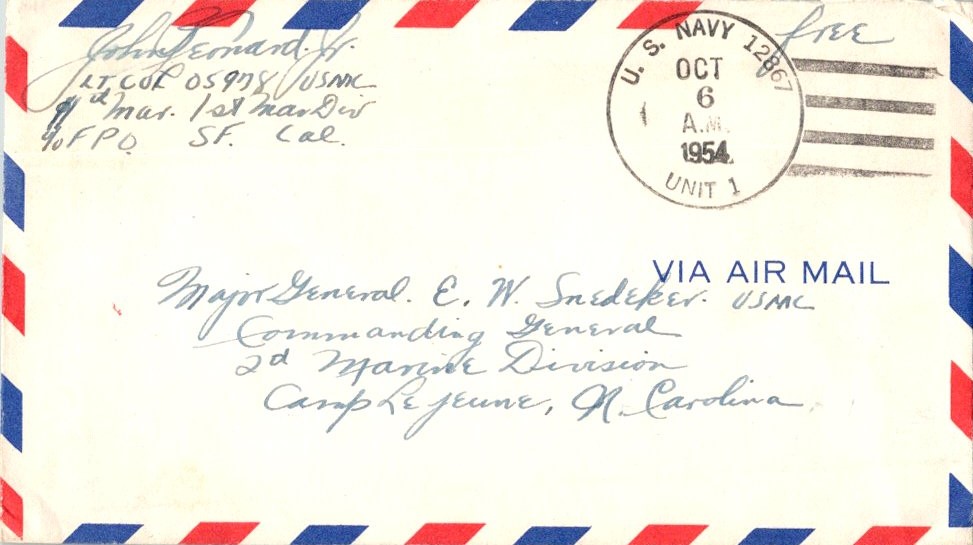 John Leonard. Jr.
LT. COL 05978 USMC
Mar. 1st Mar Div
c/o FPO SF. Cal.
free
U. S. NAVY 12867
OCT
6
A.M.
1954
UNIT 1
VIA AIR MAIL
Major General. E. W. Snedeker. USMC
Commanding General
2d Marine Division
Camp Lejeune, N. Carolina